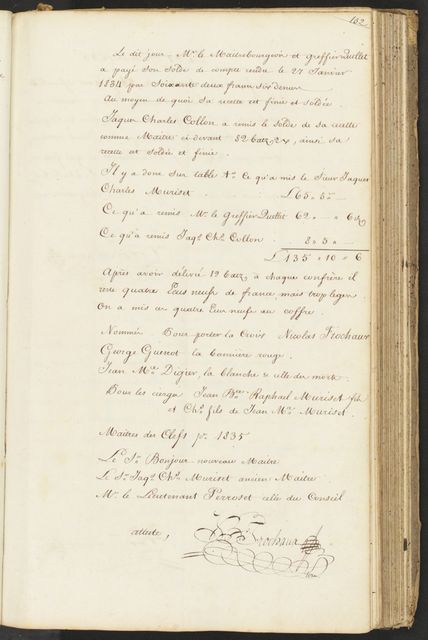 152
Le dit jour Mr. le Maitrebourgeois et greffier Quellet
a payé son solde de compte rendu le 27 Janvier
1834 par Soixante deux francs six deniers
Au moyen de quoi sa recette est finie et soldée.
Jaques Charles Collon a remis le solde de sa recette
comme Maitre ci devant 82 batz 2 xr, ainsi sa
recette est soldée et finie.
Il y a donc sur table 1o Ce qu'a mis le Sieur Jaques
Charles Muriset. £ 65 " 5 " -
Ce qu'a remis Mr. le greffier Quellet 62 " - " 6
Ce qu'a remis Jaqs. Chs. Collon 8 " 5 " -
£ 135 " 10 " 6
Après avoir délivré 19 batz à chaque confrère il
reste quatre Ecus neufs de france, mais trop léger.
On a mis ces quatre Ecus neufs au coffre.
Nommés Pour porter la Croix Nicolas Frochaux
George Guenot la bannière rouge.
Jean Mce. Digier, la blanche & celle du mort.
Pour les cierges Jean Bte. Raphael Muriset fils
et Chs. fils de Jean Mce. Muriset.
Maîtres des Clefs pr. 1835
Le Sr. Bonjour nouveau Maitre
Le Sr. Jaqs. Chs. Muriset ancien Maitre
Mr. le Lieutenant Perroset celle du Conseil
atteste,
Frochaux